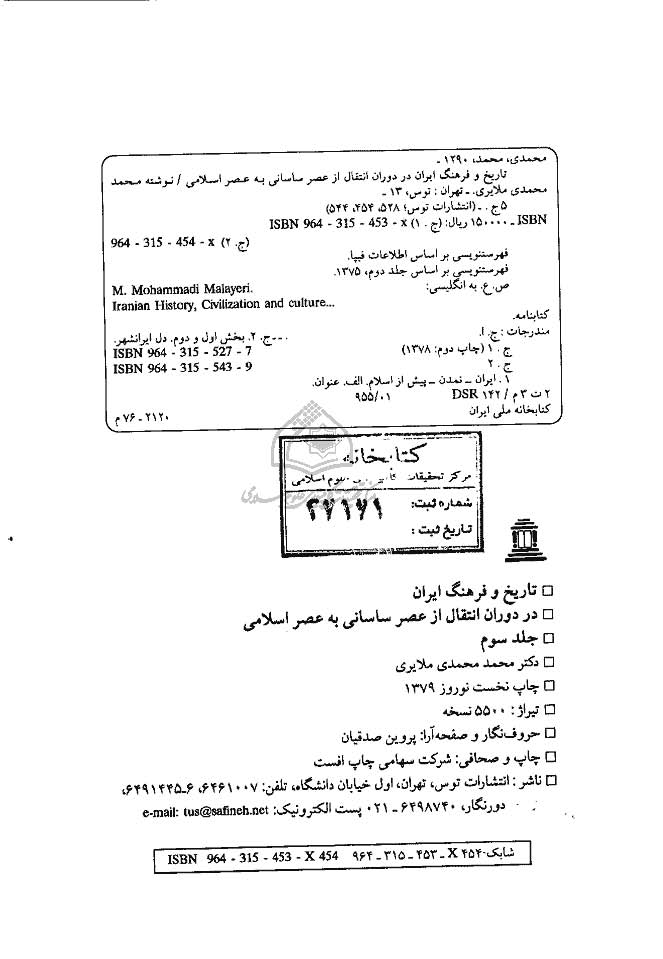 محمدی، محمد، ۱۲۹۰ ـ
تاریخ و فرهنگ ایران در دوران انتقال از عصر ساسانی به عصر اسلامی / نوشته محمد
محمدی ملایری. ـ تهران : توس، ۱۳ ـ
۵ج . ـ (انتشارات توس؛ ۵۲۸، ۴۵۴، ۵۴۴)
ISBN ـ ۱۵۰۰۰۰ ریال: (ج . ۱) ISBN 964 - 315 - 453 - x
(ج. ۲) 964 - 315 - 454 - x
فهرستنویسی بر اساس اطلاعات فیپا.
فهرستنویسی بر اساس جلد دوم، ۱۳۷۵.
ص.ع. به انگلیسی: M. Mohammadi Malayeri.
Iranian History, Civilization and culture...
کتابنامه.
مندرجات : ج. ۱. ...ـ ج. ۲. بخش اول و دوم. دل ایرانشهر.
ج . ۱ (چاپ دوم: ۱۳۷۸) ISBN 964 - 315 - 527 - 7
ج . ۲ ISBN 964 - 315 - 543 - 9
۱ . ایران ـ تمدن ـ پیش از اسلام. الف. عنوان.
۲ ت ۳ م / ۱۴۲ DSR ۹۵۵/۰۱
کتابخانه ملی ایران ۲۱۲۰ ـ ۷۶ م
کتابخانه
مرکز تحقیقات علوم اسلامی
شماره ثبت: ۲۷۱۶۱
تاریخ ثبت :
تاریخ و فرهنگ ایران
در دوران انتقال از عصر ساسانی به عصر اسلامی
جلد سوم
دکتر محمد محمدی ملایری
چاپ نخست نوروز ۱۳۷۹
تیراژ : ۵۵۰۰ نسخه
حروف‌نگار و صفحه‌آرا: پروین صدقیان
چاپ و صحافی: شرکت سهامی چاپ افست
ناشر : انتشارات توس، تهران، اول خیابان دانشگاه، تلفن: ۶۴۶۱۰۰۷، ۶ـ۶۴۹۱۴۴۵،
دورنگار، ۶۴۹۸۷۴۰ ـ ۰۲۱ پست الکترونیک: e-mail: tus@safineh.net
شابک-۴۵۴ X ـ ۴۵۳ ـ ۳۱۵ ـ ۹۶۴ ISBN 964 - 315 - 453 - X 454